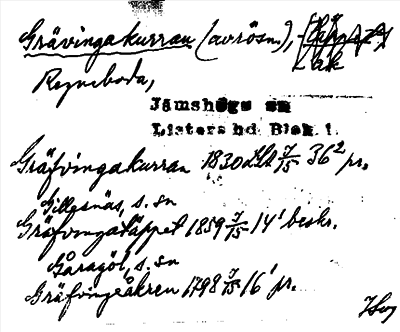 Grävingakurran (avrösn.),
Lak
Ryneboda,
Jämshögs sn
Listers hd Blek. l.
Gräfvingakurran 1830 7/15 36² pr.
Gillesnäs, s. sn
Gräfvingatäppet 1859 7/15 14' beskr.
Gåragöl, s. sn
Gräfvingeåkren 1798 7/15 16' pr.